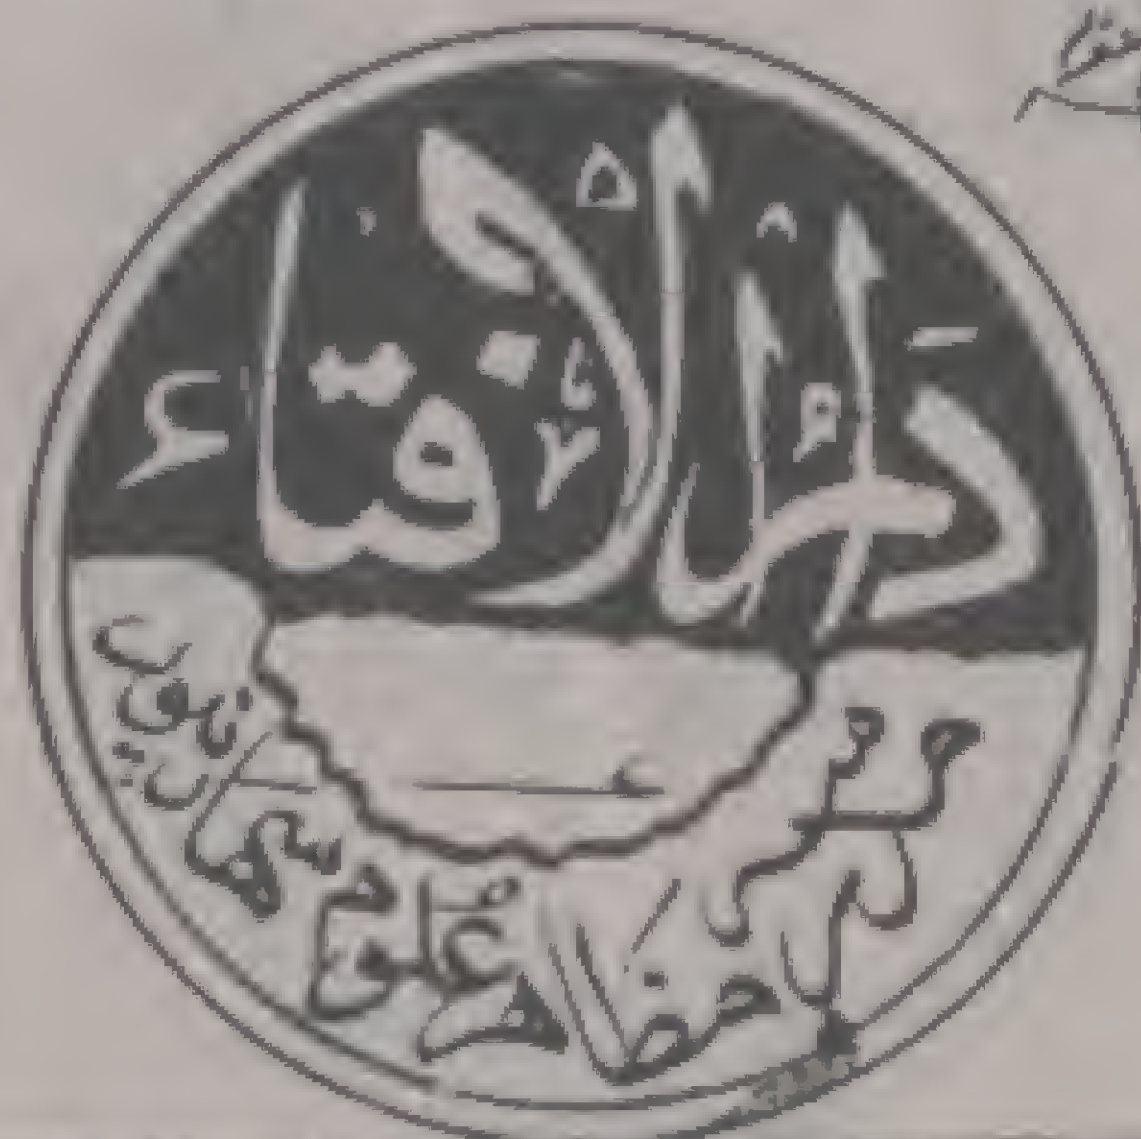 دَارُ الافتاء
مدرسہ مظاہر علوم سہارنپور